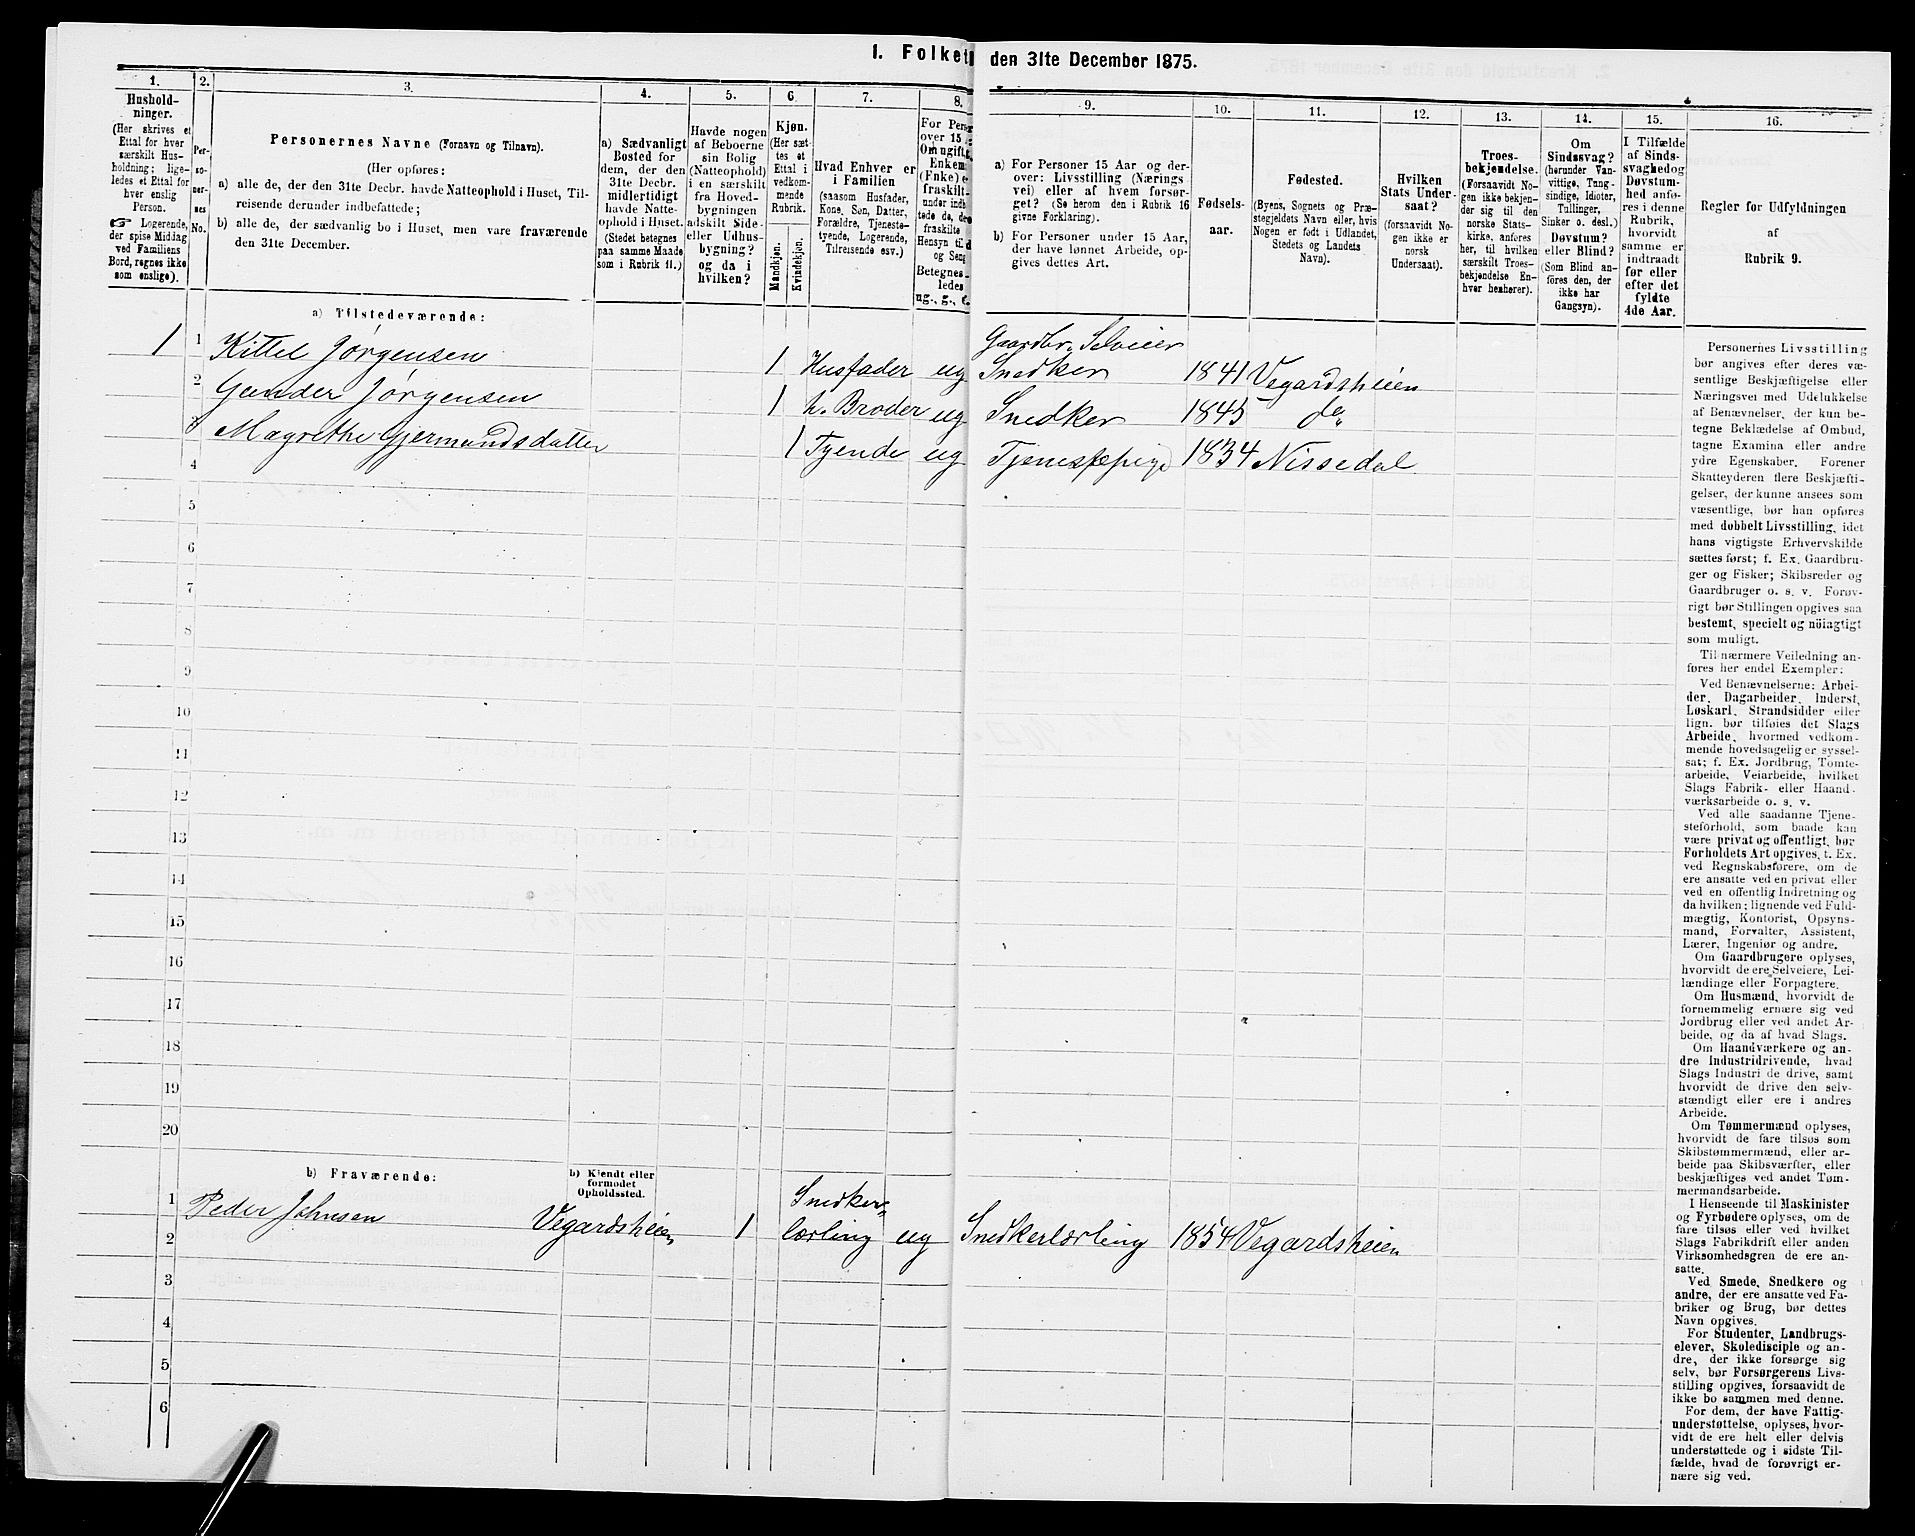 1. Folket den 31te December 1875.
1.
Hushold-
ninger.
(Her skrives et
Ettal for hver
særskilt Hus-
holdning; lige-
ledes et Ettal for
hver enslig
Person.
☞ Logerende,
der spise Middag
ved Familiens
Bord, regnes ikke
som enslige).
2.
Per-
so-
ner-
nes
No.
3.
Personernes Navne (Fornavn og Tilnavn).
(Her opføres:
a) alle de, der den 31te Decbr. havde Natteophold i Huset, Til-
reisende derunder indbefattede;
b) alle de, der sædvanlig bo i Huset, men vare fraværende
den 31te December.
4.
a) Sædvanligt
Bosted for
dem, der den
31te Decbr.
midlertidigt
havde Natte-
ophold i Huset.
(Stedet betegnes
paa samme Maade
som i Rubrik 11.)
5.
Havde nogen
af Beboerne
sin Bolig
(Natteophold)
i en særskilt
fra Hoved-
bygningen
adskilt Side-
eller Udhus-
bygning?
og da i
hvilken?
6
Kjøn.
(Her sæt-
tes et
Ettal i
vedkom-
mende
Rubrik.
Mandkjøn.
Kvindekjøn.
7.
Hvad Enhver er
i Familien
(saasom Husfader,
Kone, Søn, Datter,
Forældre, Tjeneste-
tyende, Logerende,
Tilreisende osv.)
8.
For Perso
over 15
Om ugift,
Enkem
(Enke) e
fraskilt
under indb
tede de, de
fraskilte
Hensyn til
og Seng
Betegnes
ledes
ug., g., e.
9.
a) For Personer 15 Aar og der-
over: Livsstilling (Nærings
vei) eller af hvem forsør-
get? (Se herom den i Rubrik 16
givne Forklaring).
b) For Personer under 15 Aar,
der have lønnet Arbeide, op-
gives dettes Art.
10.
Fødsels-
aar.
11.
Fødested.
(Byens, Sognets og Præ-
stegjeldets Navn eller, hvis
Nogen er født i Udlandet,
Stedets og Landets
Navn).
12.
Hvilken
Stats Under-
saat?
(forsaavidt No-
gen ikke er
norsk
Undersaat).
13.
Troes-
bekjendelse.
(Forsaavidt No-
gen ikke bekjen-
der sig til den
norske Stats-
kirke, anføres
her, til hvilken
særskilt Troes-
bekjendelse En-
hver henhører).
14.
Om
Sindssvag?
(herunder Van-
vittige, Tung-
sindige, Idioter,
Tullinger,
Sinker o. desl.)
Døvstum?
eller Blind?
(Som Blind an-
føres den, der
ikke har
Gangsyn).
15.
I Tilfælde
af Sinds-
svaghed og
Døvstum-
hed anfø-
res i denne
Rubrik,
hvorvidt
samme er
indtraadt
før eller
efter det
fyldte
4de Aar.
16.
Regler før Udfyldningen
af
Rubrik 9.
a) Tilstedeværende:
1 1 Kittel Jørgensen 1 Husfader ug Gaardbr. Selveier
Snedker 1841 Vegardsheien
2 Gunder Jørgensen 1 h. Broder ug Snedker 1845 do
3 Magrethe Gjermundsdatter 1 Tyende ug Tjenestepige 1834 Nissedal
4
5
6
7
8
9
10
11
12
13
14
15
16
17
18
19
20
b) Fraværende:
b) Kjendt eller
formodet
Opholdssted.
1 Peder Johnsen Vegardsheien 1 Snedker-
lærling ug Snedkerlærling 1854 Vegardsheien
2
3
4
5
6
Personernes Livsstilling
bør angives efter deres væ-
sentlige Beskjæftigelse eller
Næringsvei med Udelukkelse
af Benævnelser, der kun be-
tegne Beklædelse af Ombud,
tagne Examina eller andre
ydre Egenskaber. Forener
Skatteyderen flere Beskjæfti-
gelser, der kunne ansees som
væsentlige, bør han opføres
med dobbelt Livsstilling, idet
hans vigtigste Erhvervskilde
sættes først; f. Ex. Gaardbru-
ger og Fisker; Skibsreder og
Gaardbruger o. s. v. Forøv-
rigt bør Stillingen opgives saa
bestemt, specielt og nöiagtigt
som muligt.
Til nærmere Veiledning an-
føres her endel Exempler:
Ved Benævnelserne: Arbei-
der, Dagarbeider, Inderst,
Løskarl, Strandsidder eller
lign. bør tilføies det Slags
Arbeide, hvormed vedkom-
mende hovedsagelig er syssel-
sat; f. Ex. Jordbrug, Tomte-
arbeide, Veiarbeide, hvilket
Slags Fabrik- eller Haand-
værksarbeide o. s. v.
Ved alle saadanne Tjene-
steforhold, som baade kan
være privat og offentligt, bør
Forholdets Art opgives, t. Ex.
ved Regnskabsførere, om de
ere ansatte ved en privat eller
ved en offentlig Indretning og
da hvilken; lignende ved Fuld-
mægtig, Kontorist, Opsyns-
mand, Forvalter, Assistent,
Lærer, Ingeniør og andre.
Om Gaardbrugere oplyses,
hvorvidt de ere Selveiere, Lei-
lændinge eller Forpagtere.
Om Husmænd, hvorvidt de
fornemmelig ernære sig ved
Jordbrug eller ved andet Ar-
beide, og da af hvad Slags.
Om Haandværkere og an-
dre Industridrivende, hvad
Slags Industri de drive, samt
hvorvidt de drive den selv-
stændigt eller ere i andres
Arbeide.
Om Tømmermænd oplyses,
hvorvidt de fare tilsøs som
Skibstømmermænd, eller ar-
beide paa Skibsværfter, eller
beskjæftiges ved andet Tøm-
mermandsarbeide.
I Henseende til Maskinister
og Fyrbødere oplyses, om de
fare tilsøs eller ved hvilket
Slags Fabrikdrift eller anden
Virksomhedsgren de ere an-
satte.
Ved Smede, Snedkere og
andre, der ere ansatte ved Fa-
briker og Brug, bør dettes
Navn opgives.
For Studenter, Landbrugs-
elever, Skoledisciple og an-
dre, der ikke forsørge sig
selv, bør Forsørgerens Livs-
stilling opgives, forsaavidt de
ikke bo sammen med denne.
For dem, der have Fattig-
understøttelse, oplyses, hvor-
vidt de ere helt eller delvis
understøttede og i sidste Til-
fælde, hvad de forøvrigt er-
nære sig ved.